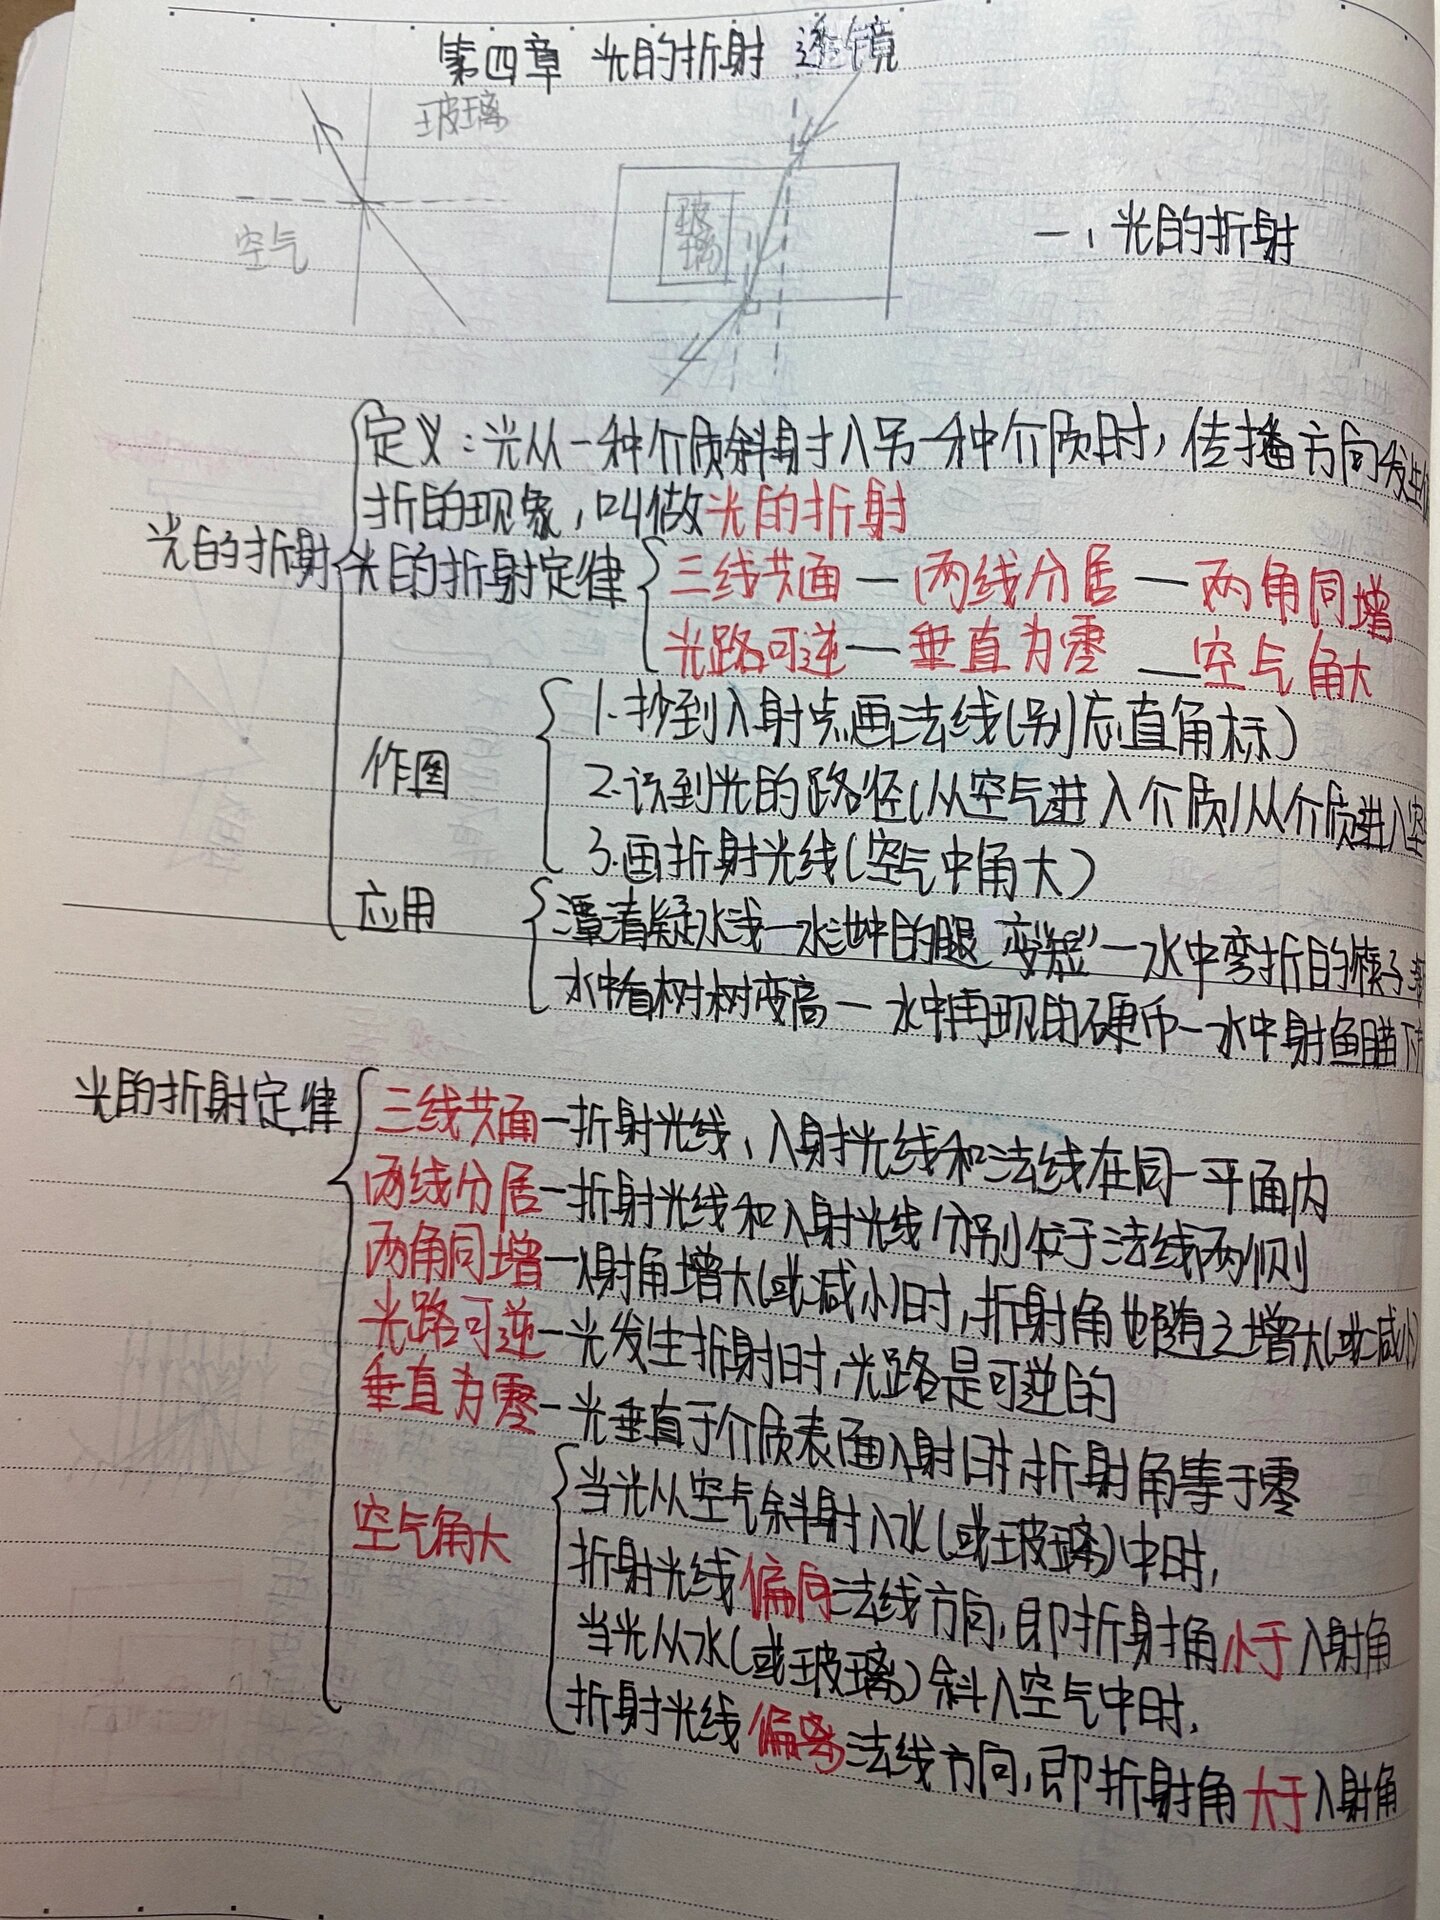 第四章 光的折射 透镜
玻璃
空气
玻璃
一、光的折射
定义：光从一种介质斜射入另一种介质时，传播方向发生偏
折的现象，叫做光的折射
光的折射
光的折射定律
三线共面—两线分居—两角同增
光路可逆—垂直为零—空气角大
作图
1.找到入射点画法线(别忘直角标)
2.识到光的路径(从空气进入介质/从介质进入空
3.画折射光线(空气中角大)
应用
潭清疑水浅—水池中的腿变“短”—水中弯折的筷子
水中看树树变高—水中再现的硬币—水中射鱼瞄下方
光的折射定律
三线共面—折射光线、入射光线和法线在同一平面内
两线分居—折射光线和入射光线分别位于法线两侧
两角同增—入射角增大(或减小)时,折射角也随之增大(或减小)
光路可逆—光发生折射时,光路是可逆的
垂直为零—光垂直于介质表面入射时,折射角等于零
空气角大
当光从空气斜射入水(或玻璃)中时,
折射光线偏向法线方向,即折射角小于入射角
当光从水(或玻璃)斜入空气中时,
折射光线偏离法线方向,即折射角大于入射角